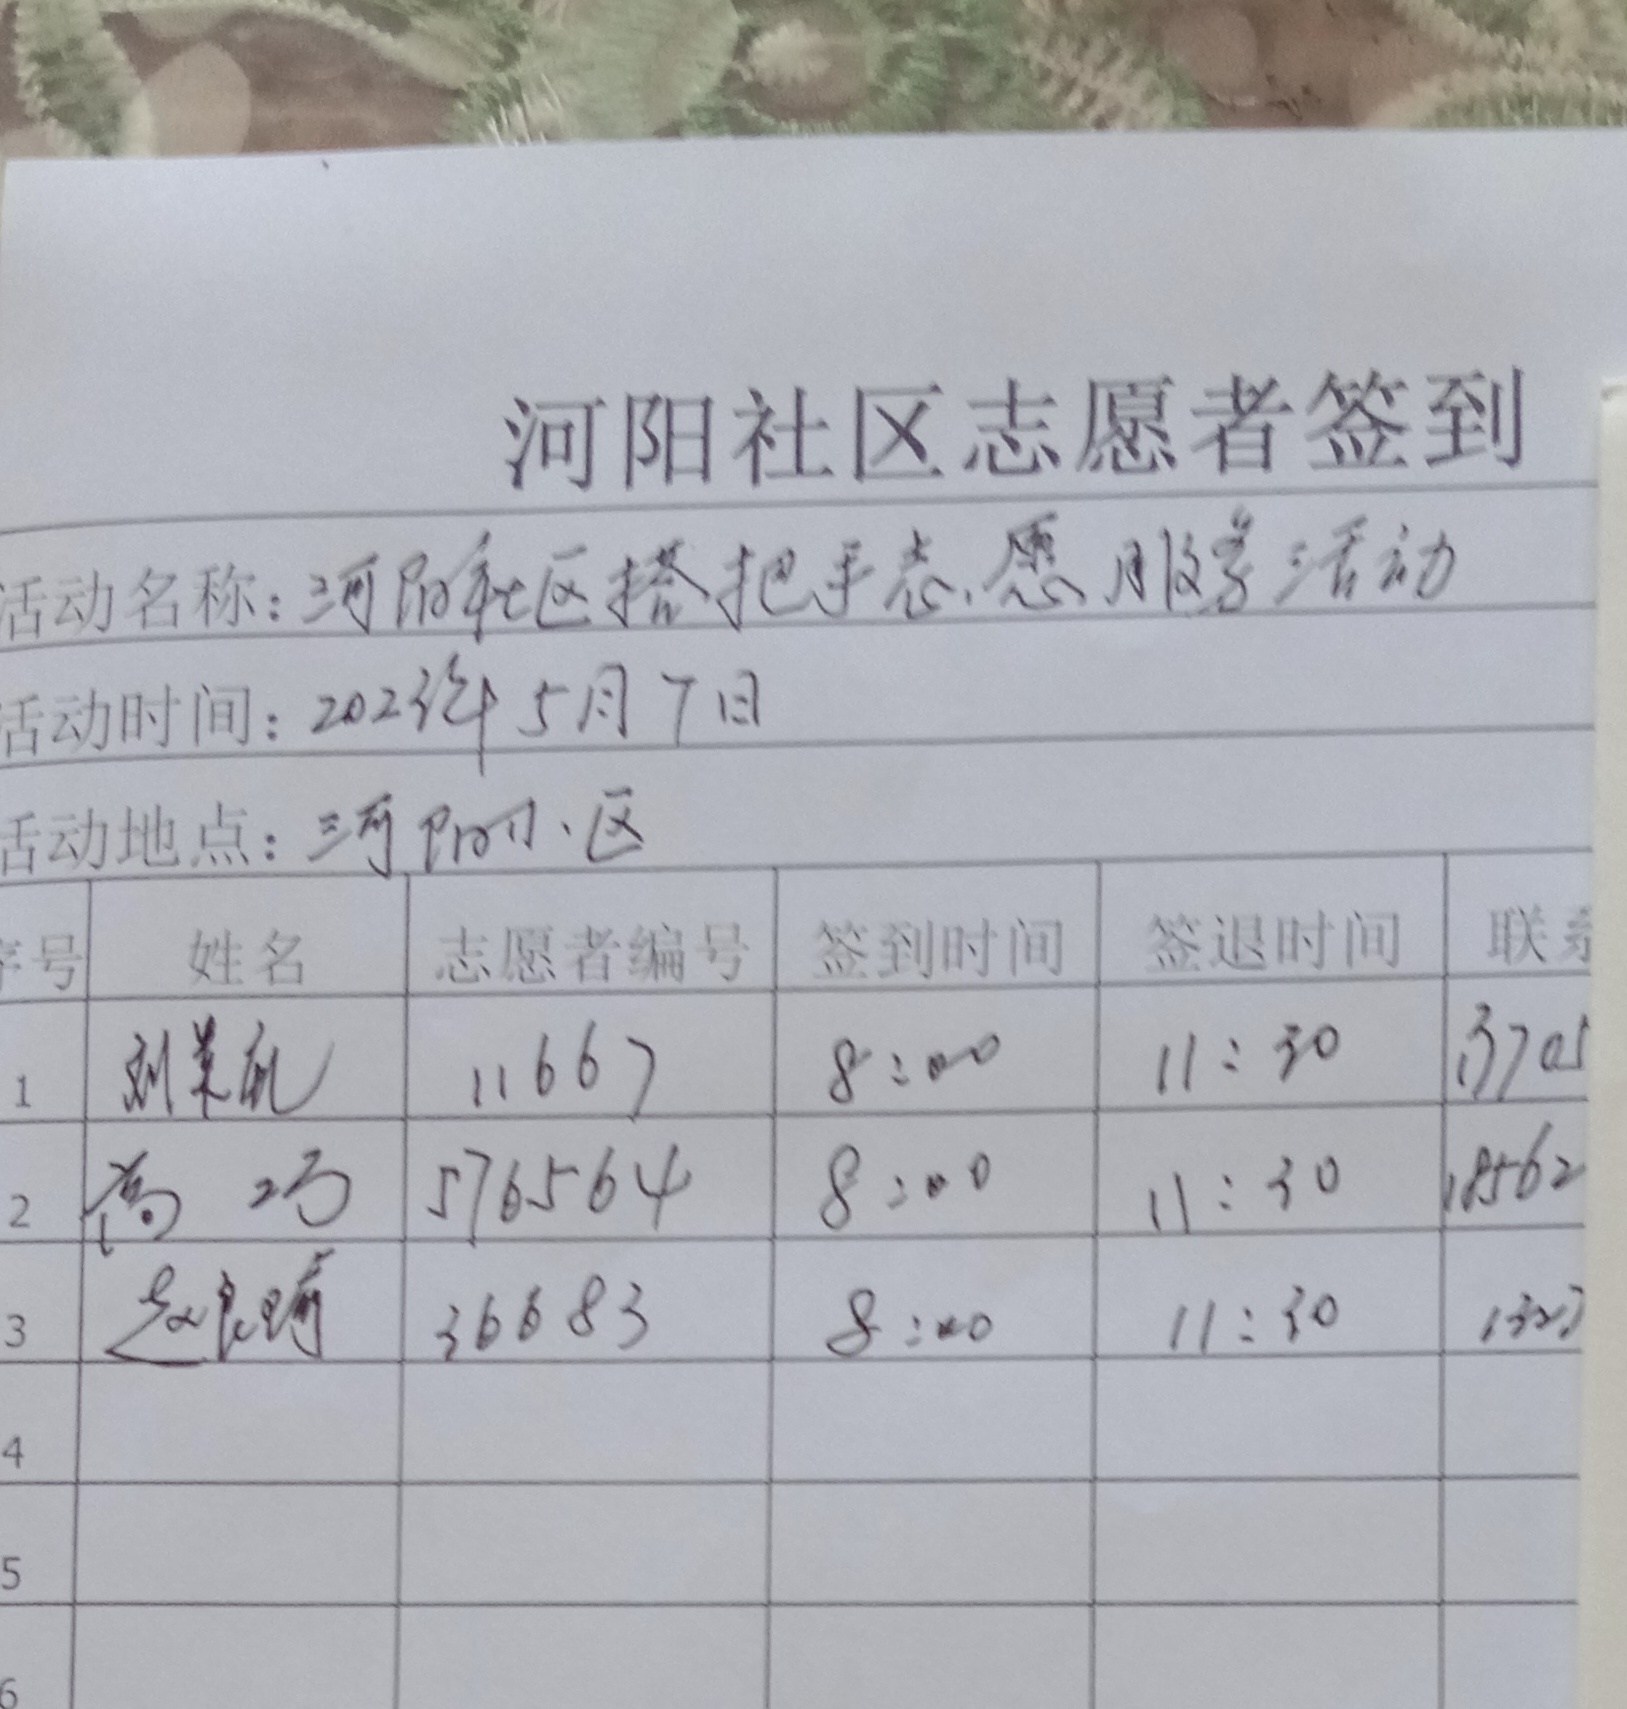 河阳社区志愿者签到
活动名称：河阳社区搭把手志愿服务活动
活动时间：2023年5月7日
活动地点：河阳小区
序号 姓名 志愿者编号 签到时间 签退时间 联系
1 刘 11667 8:00 11:30 13705
2 高巧 576564 8:00 11:30 18562
3 赵良 36683 8:00 11:30
4
5
6